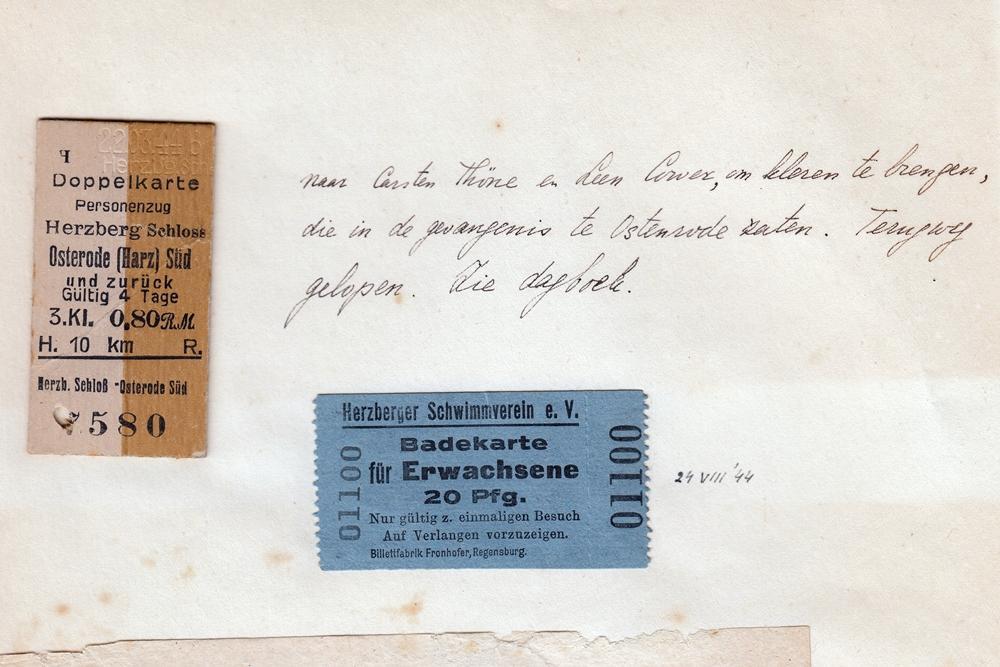 22.03.44 6
Herzberg
H
Doppelkarte
Personenzug
Herzberg Schloss
Osterode (Harz) Süd
und zurück
Gültig 4 Tage
3.Kl. 0,80 R.M.
H. 10 km R.
Herzb. Schloß -Osterode Süd
7580
naar Carsten Thöne en Leen Cower, om kleren te brengen,
die in de gevangenis te Ostenrode zaten. Terugweg
gelopen. Zie dagboek.
Herzberger Schwimmverein e. V.
Badekarte
für Erwachsene
20 Pfg.
Nur gültig z. einmaligen Besuch
Auf Verlangen vorzuzeigen.
Billettfabrik Fronhofer, Regensburg.
01100
01100
24 VIII '44